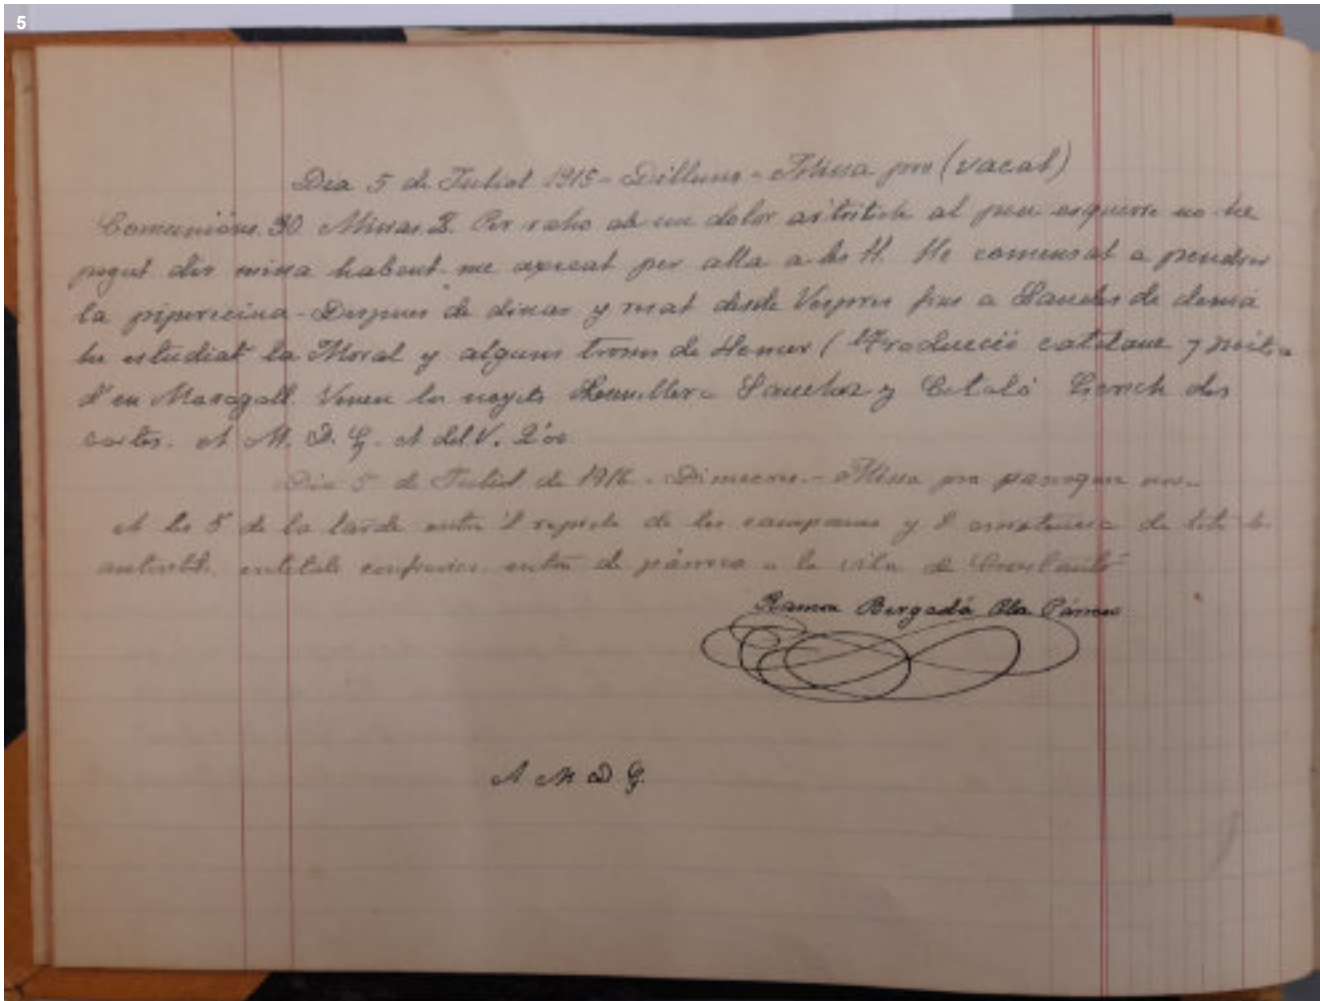 5
Dia 5 de Juliol 1915 - Dilluns - Missa pro (vacat)
Comunions. 30 Missas. 2. Per raho de un dolor artritich al peu esquerre no he
pogut dir missa habent-me axecat per alla a les 11. He comensat a pendrer
la piperacina - Despues de dinar y resat desde Vespres fins a Laudes de demá
he estudiat la Moral y alguns trossos de Homer (
d'en Maragall. Venen los noyets Sanchez y Catalá
cartes. A. M. D. G. A del V. 2'00
Dia 5 de Juliol de 1916 - Dimecres. - Missa pro
A les 5 de la tarde entre 'l de les campanas y l' de tots los
de párroco a la vila de Constantí
Ramon Bergadá Pla Párroco
A M D G.